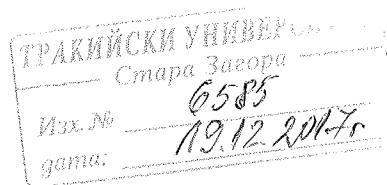 ТРАКИЙСКИ
Стара Загора
Изх. № 6585
дата: 19.12.2017г